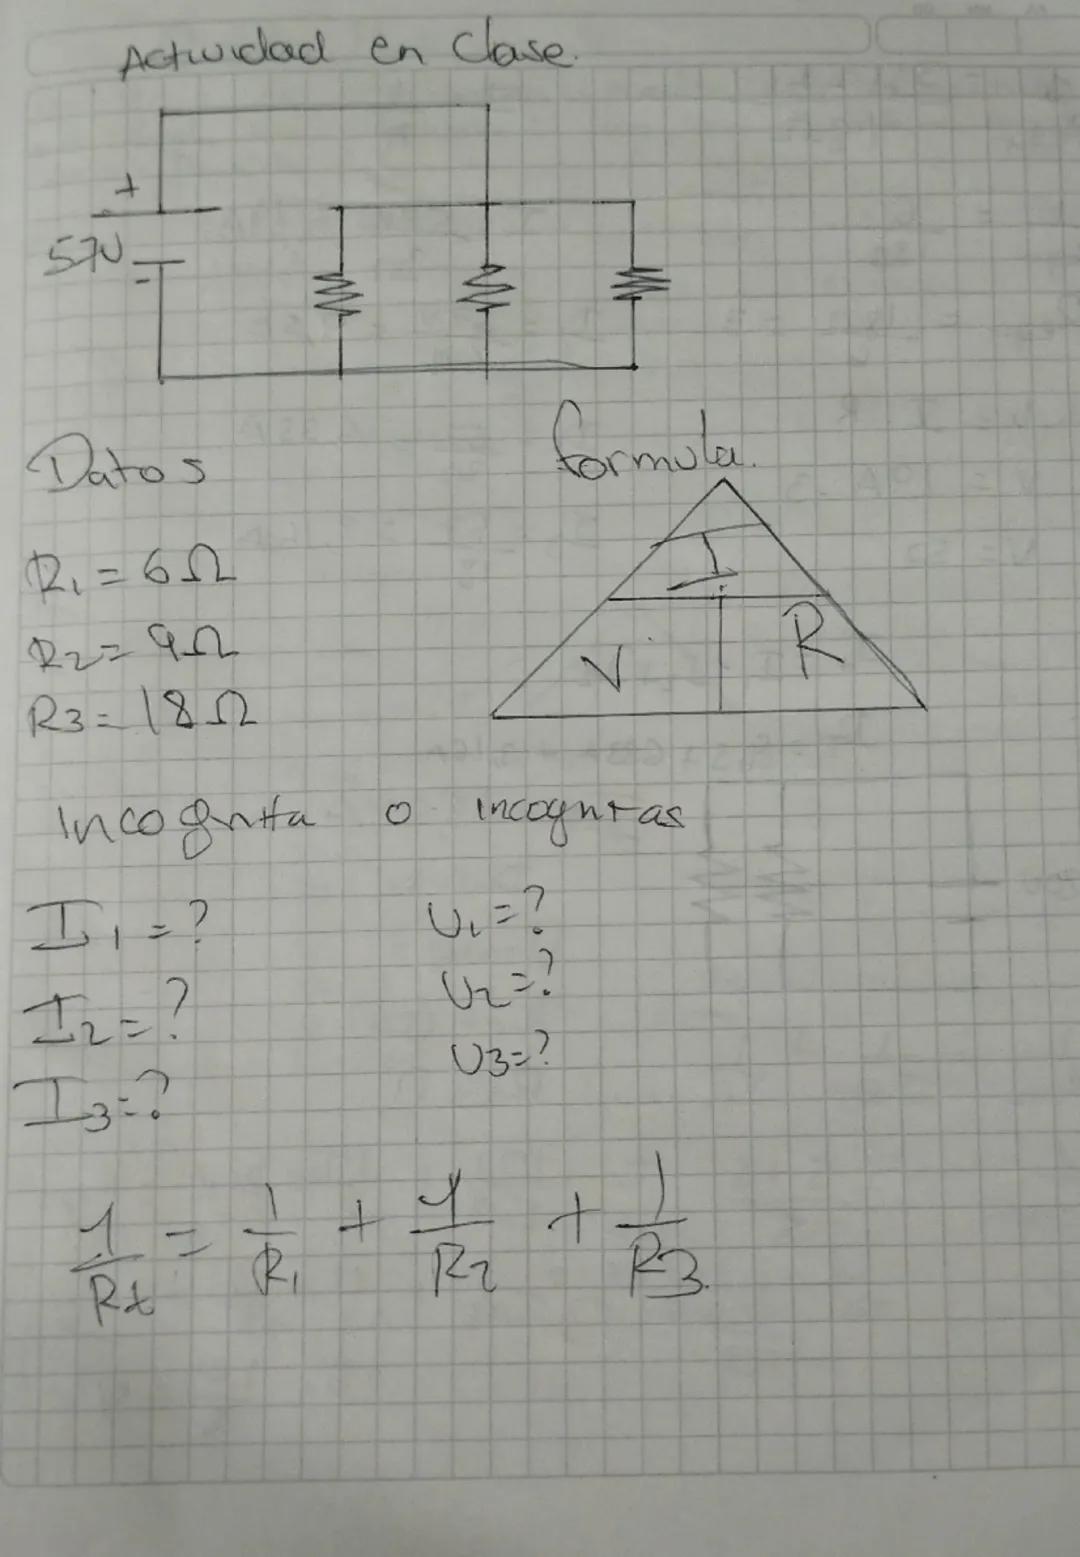 Actividad en Clase.
+
57V
-
Datos
formula.
R1 = 6Ω
R2 = 9Ω
R3 = 18Ω
I
V R
Incognita o incognitas
I1 = ?
U1 = ?
I2 = ?
U2 = ?
I3 = ?
U3 = ?
1/Rt = 1/R1 + 1/R2 + 1/R3.